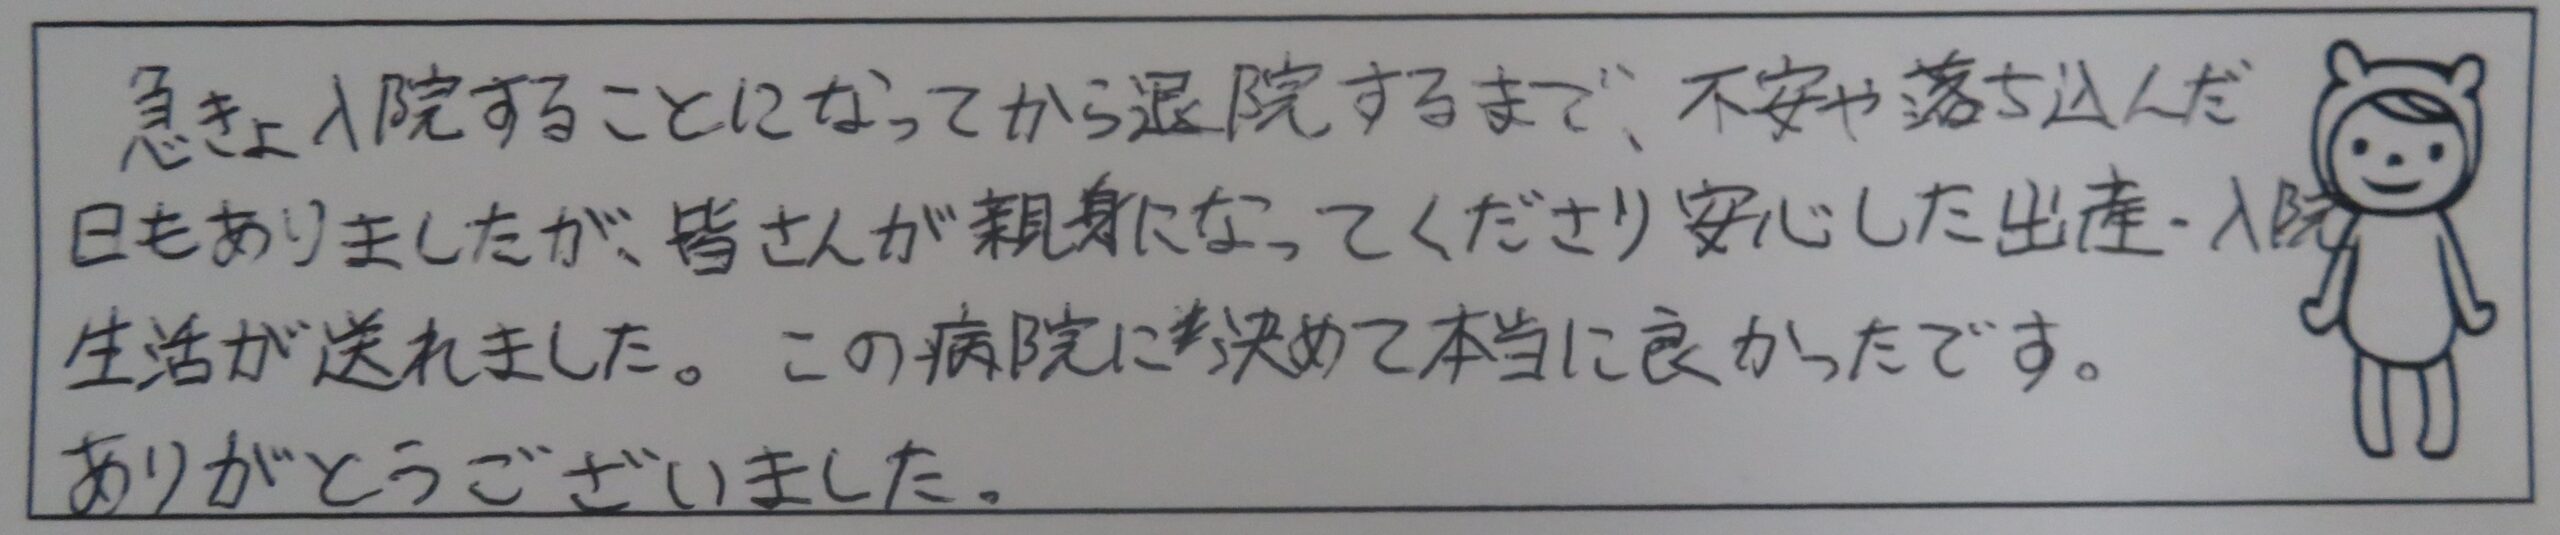 急きょ入院することになってから退院するまで、不安や落ち込んだ
日もありましたが、皆さんが親身になってくださり安心した出産・入院
生活が送れました。この病院に決めて本当に良かったです。
ありがとうございました。